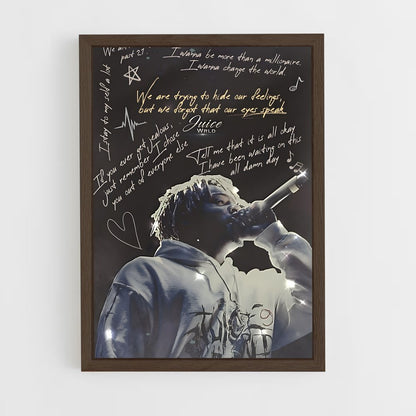 We ar
past 27.
I wanna be more than a millionaire.
I wanna change the world.
I stay to my self a lot
We are trying to hide our feelings
but we forgot that our eyes speak
Juice
WRLD
If you ever get jealous,
just remember I chose
you out of everyone else
Tell me that it is all okay
I have been waiting on this
all damn day